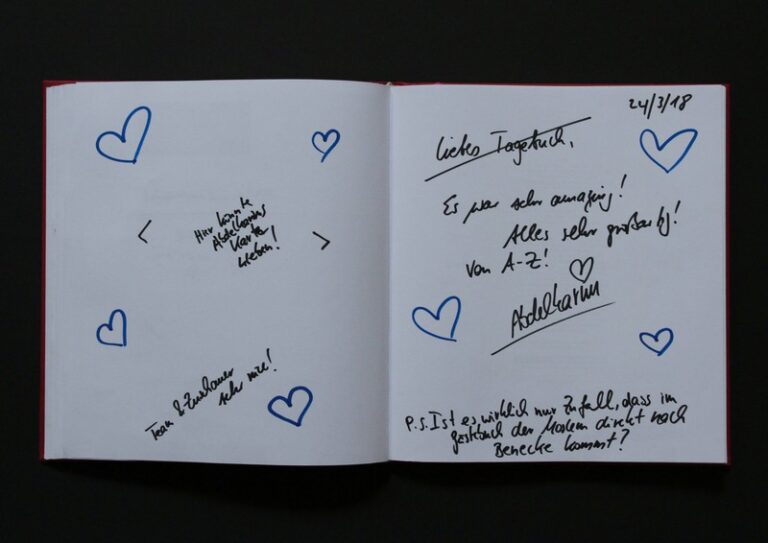 Hier könnte
Abdelkarims
Karte
kleben!
Team & Zuschauer
sehr nice!
24/3/18
Liebes Tagebuch,
Es war sehr amazing!
Alles sehr großartig!
Von A-Z!
Abdelkarim
P.S. Ist es wirklich nur Zufall, dass im
Gästebuch der Moslem direkt nach
Benecke kommt?